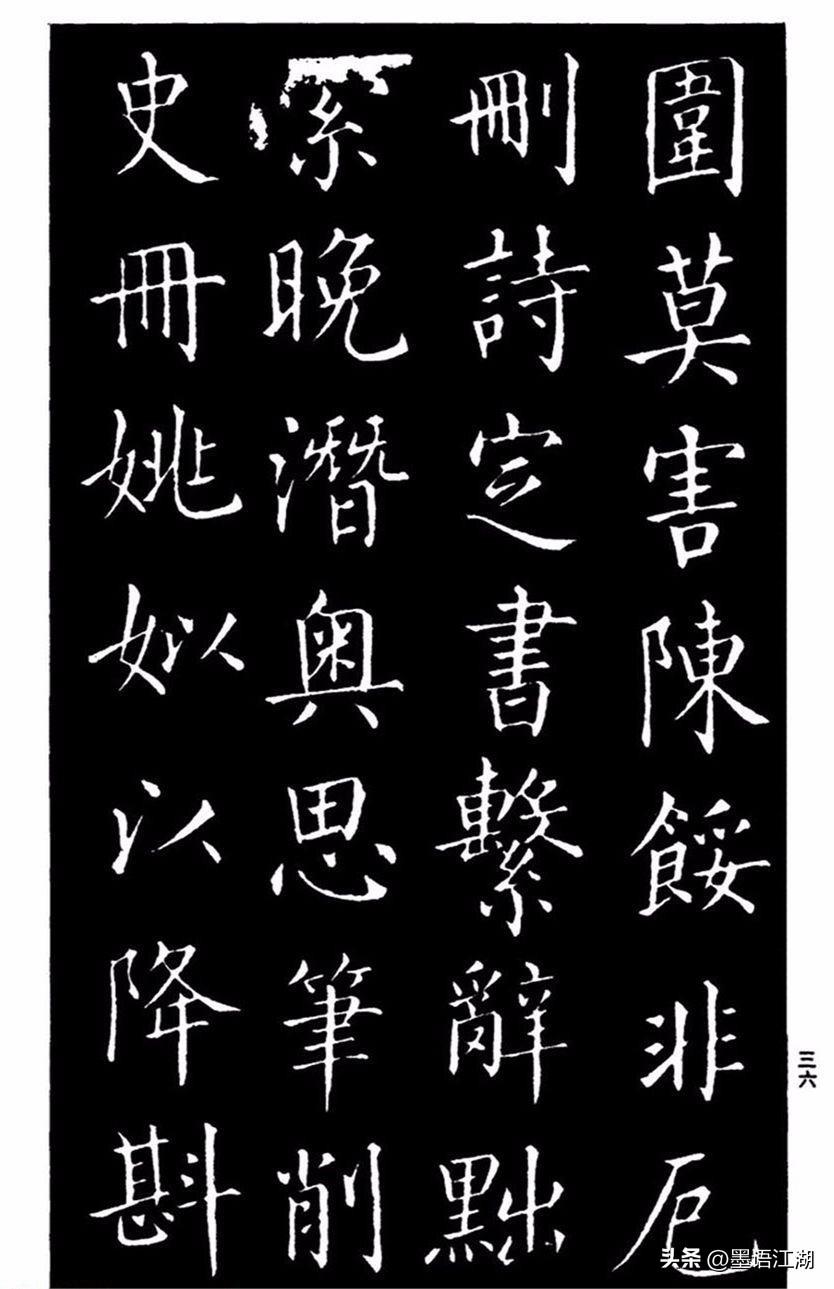 圍莫害陳餒非戹
刪詩定書繫辭黜
索晚潛奧思筆削
史冊姚姒以降斟
三六
头条 @墨语江湖